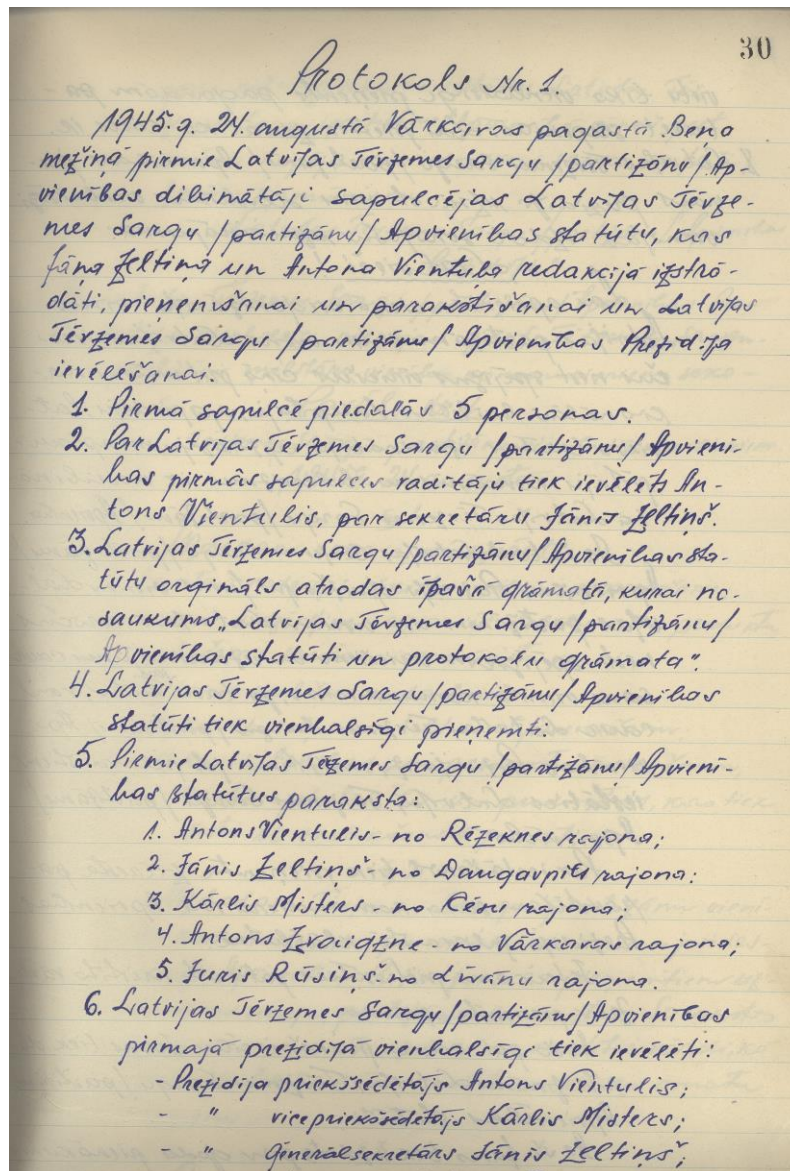 30
Protokols Nr. 1.
1945.g. 24. augustā Vārkavas pagastā Beņa
mežiņā pirmie Latvijas Tēvzemes Sargu /partizānu/ Ap-
vienības dibinātāji sapulcējas Latvijas Tēvze-
mes Sargu /partizānu/ Apvienības statūtu, kas
Jāņa Zeltiņa un Antona Vientuļa redakcijā izstrā-
dāti, pieņemšanai un parakstīšanai un Latvijas
Tēvzemes Sargu /partizānu/ Apvienības Prezidija
ievēlēšanai.
1. Pirmā sapulcē piedalās 5 personas.
2. Par Latvijas Tēvzemes Sargu /partizānu/ Apvienī-
bas pirmās sapulces vadītāju tiek ievēlēts An-
tons Vientulis, par sekretāru Jānis Zeltiņš.
3. Latvijas Tēvzemes Sargu /partizānu/ Apvienības sta-
tūtu orģināls atrodas īpašā grāmatā, kurai no-
saukums „Latvijas Tēvzemes Sargu /partizānu/
Apvienības statūti un protokolu grāmata".
4. Latvijas Tēvzemes Sargu /partizānu/ Apvienības
statūti tiek vienbalsīgi pieņemti.
5. Pirmie Latvijas Tēvzemes Sargu /partizānu/ Apvienī-
bas statūtus paraksta:
1. Antons Vientulis - no Rēzeknes rajona;
2. Jānis Zeltiņš - no Daugavpils rajona:
3. Kārlis Misters - no Cēsu rajona;
4. Antons Zvaigzne - no Vārkavas rajona;
5. Juris Rūsiņš - no Līvānu rajona.
6. Latvijas Tēvzemes Sargu /partizānu/ Apvienības
pirmajā prezidijā vienbalsīgi tiek ievēlēti:
- Prezidija priekšsēdētājs Antons Vientulis;
- " vicepriekšsēdētājs Kārlis Misters;
- " ģenerālsekretārs Jānis Zeltiņš;